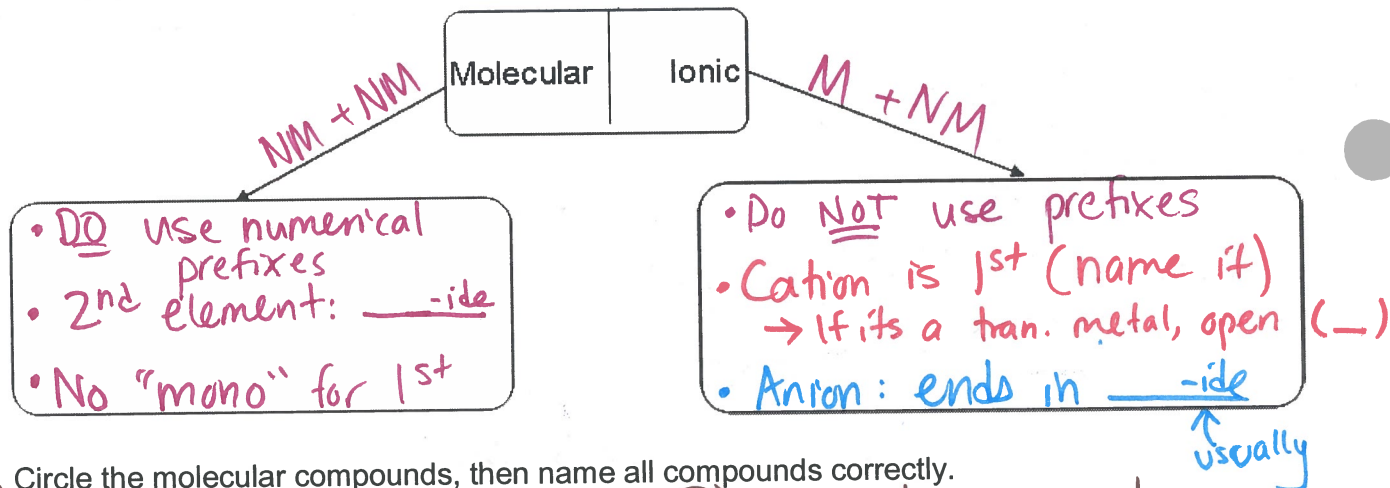 Molecular
Ionic
NM + NM
M + NM
• DO use numerical
prefixes
• 2nd element: ____-ide
• No "mono" for 1st
• Do NOT use prefixes
• Cation is 1st (name it)
→ If its a tran. metal, open (_)
• Anion: ends in ____-ide
usually
Circle the molecular compounds, then name all compounds correctly.